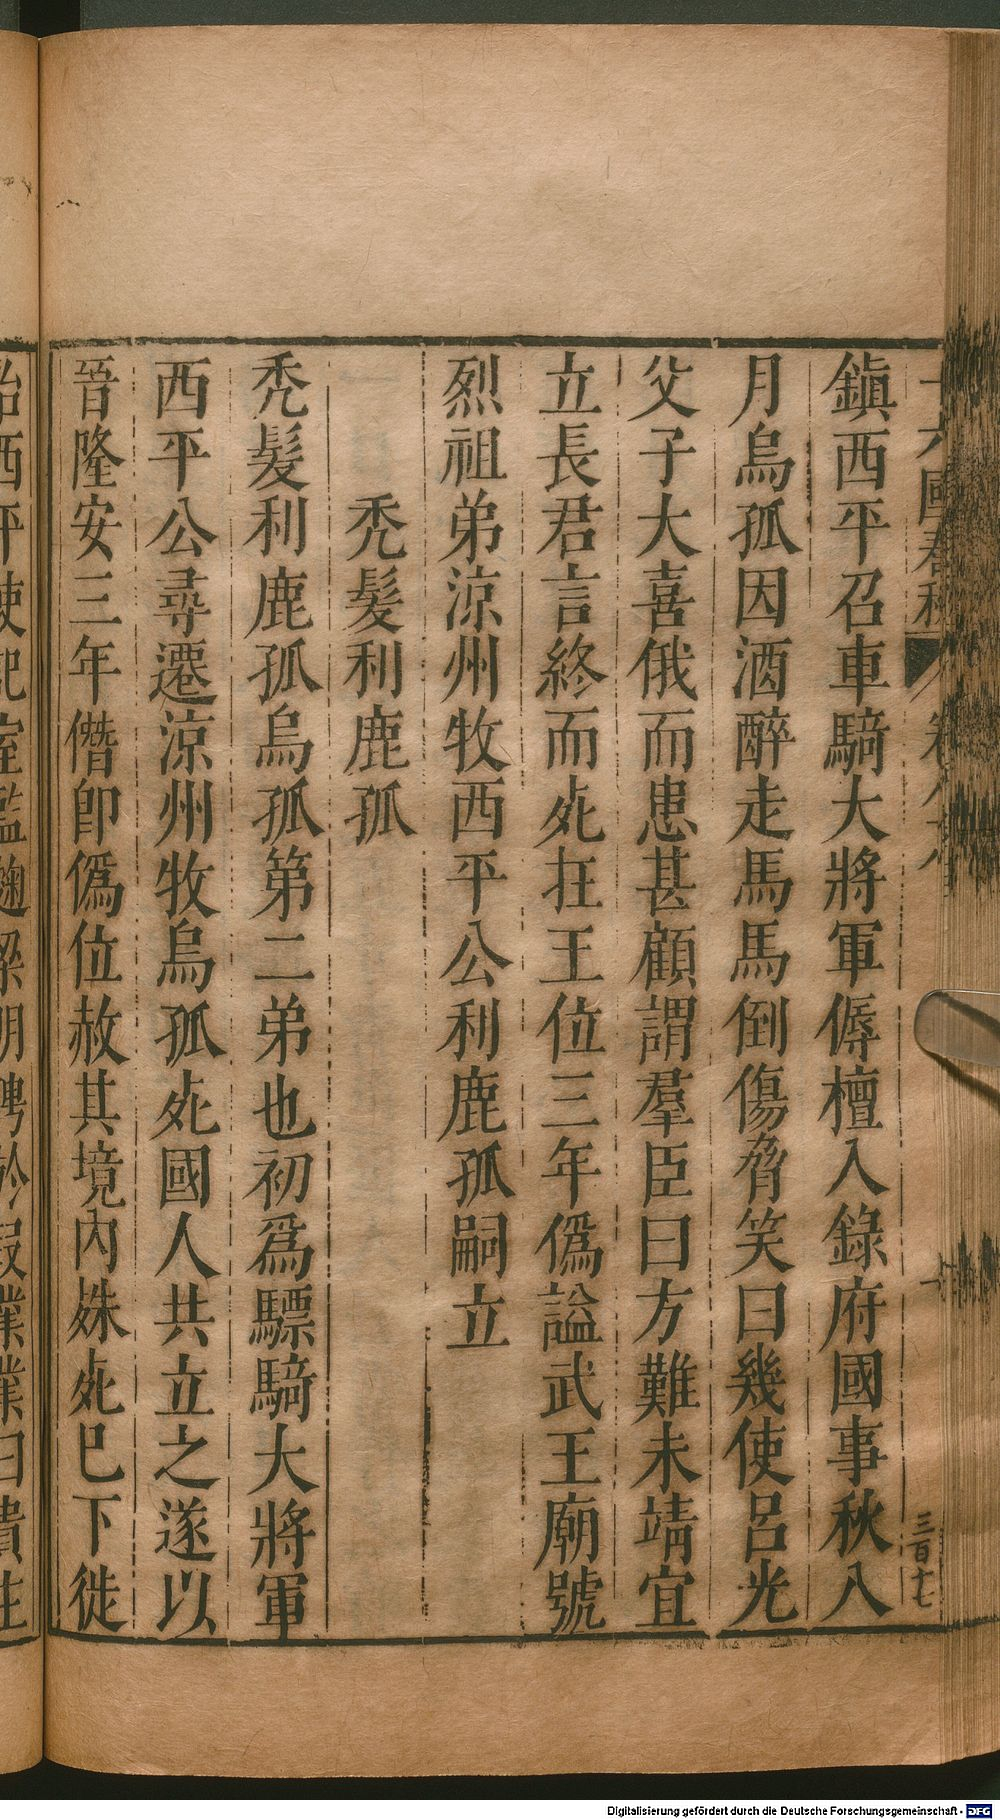 鎮西平召車騎大將軍傉檀入錄府國事秋八
月烏孤因酒醉走馬馬倒傷脅笑曰幾使呂光
父子大喜俄而患甚顧謂羣臣曰方難未靖宜
立長君言終而死在王位三年僞謚武王廟號
烈祖弟涼州牧西平公利鹿孤嗣立
禿髮利鹿孤
禿髮利鹿孤烏孤第二弟也初爲驃騎大將軍
西平公尋遷涼州牧烏孤死國人共立之遂以
晉隆安三年僭卽僞位赦其境內殊死巳下徙
三百十七
Digitalisierung gefördert durch die Deutsche Forschungsgemeinschaft - DFG